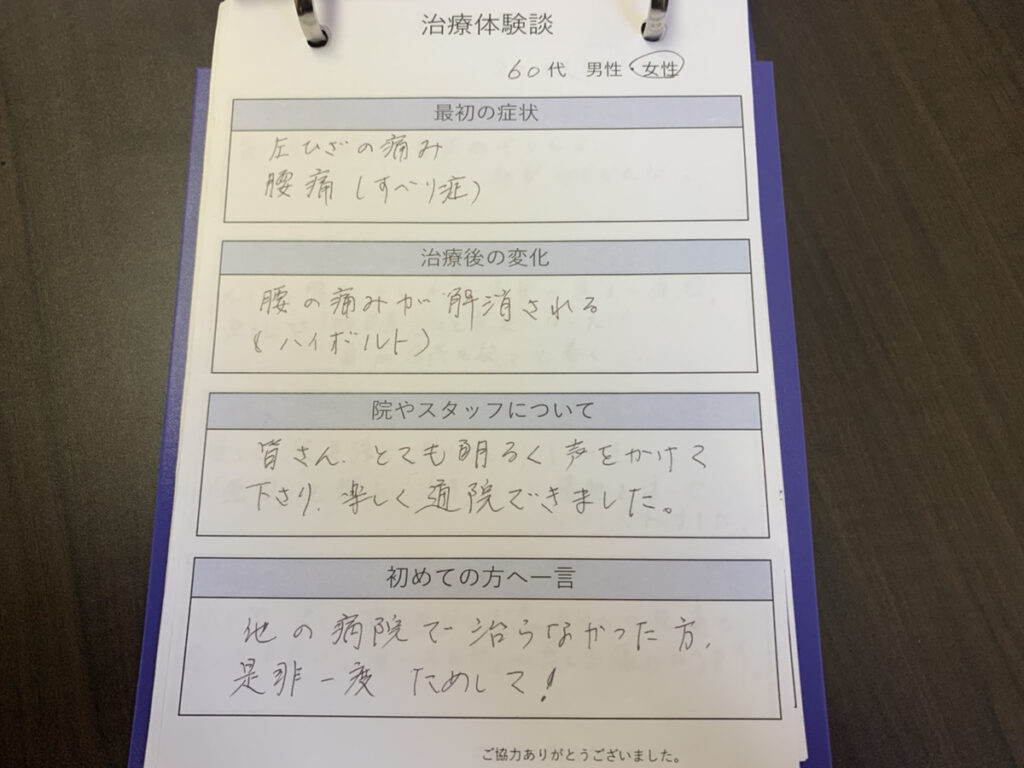 治療体験談
60代 男性・女性
最初の症状
左ひざの痛み
腰痛(すべり症)
治療後の変化
腰の痛みが解消される
(ハイボルト)
院やスタッフについて
皆さん、とても明るく声をかけて
下さり、楽しく通院できました。
初めての方へ一言
他の病院で治らなかった方、
是非一度ためして!
ご協力ありがとうございました。